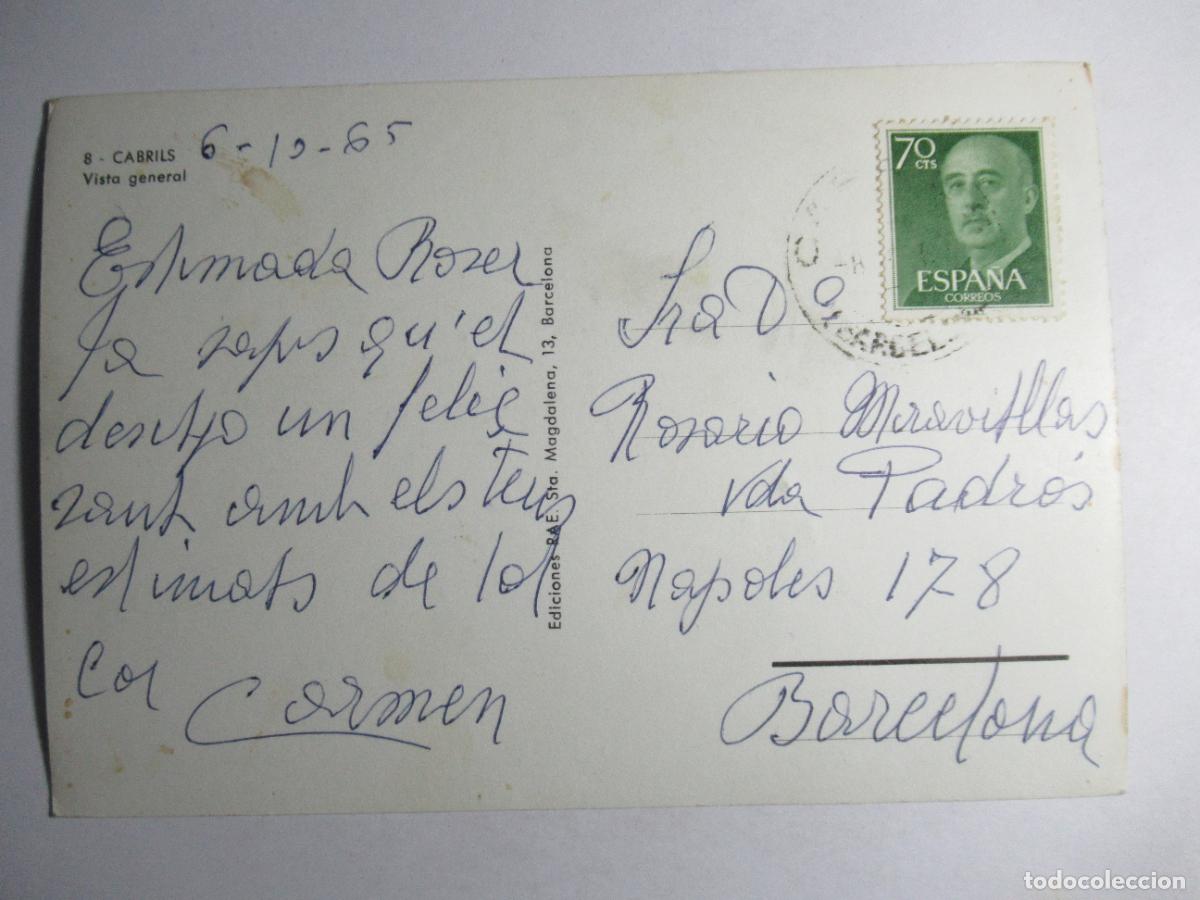 8 - CABRILS
Vista general
6-10-65
Estimada Roser
Ja saps qu'et
desitjo un feliç
sant amb els teus
estimats de tot
cor Carmen
Ediciones RAE. Sta. Magdalena, 13, Barcelona
70
CTS
ESPAÑA
CORREOS
BARCEL
Sra Dª
Rosario Maravillas
Vda Padrós
Napoles 178
Barcelona
todocoleccion